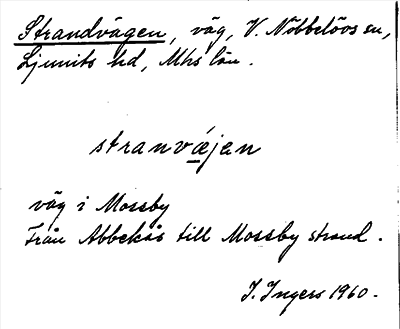 Strandvägen, väg, V. Nöbbelövs sn,
Ljunits hd, Mhs län.
stranvǽ̱jen
väg i Mossby
Från Abbekås till Mossby strand.
I. Ingers 1960.